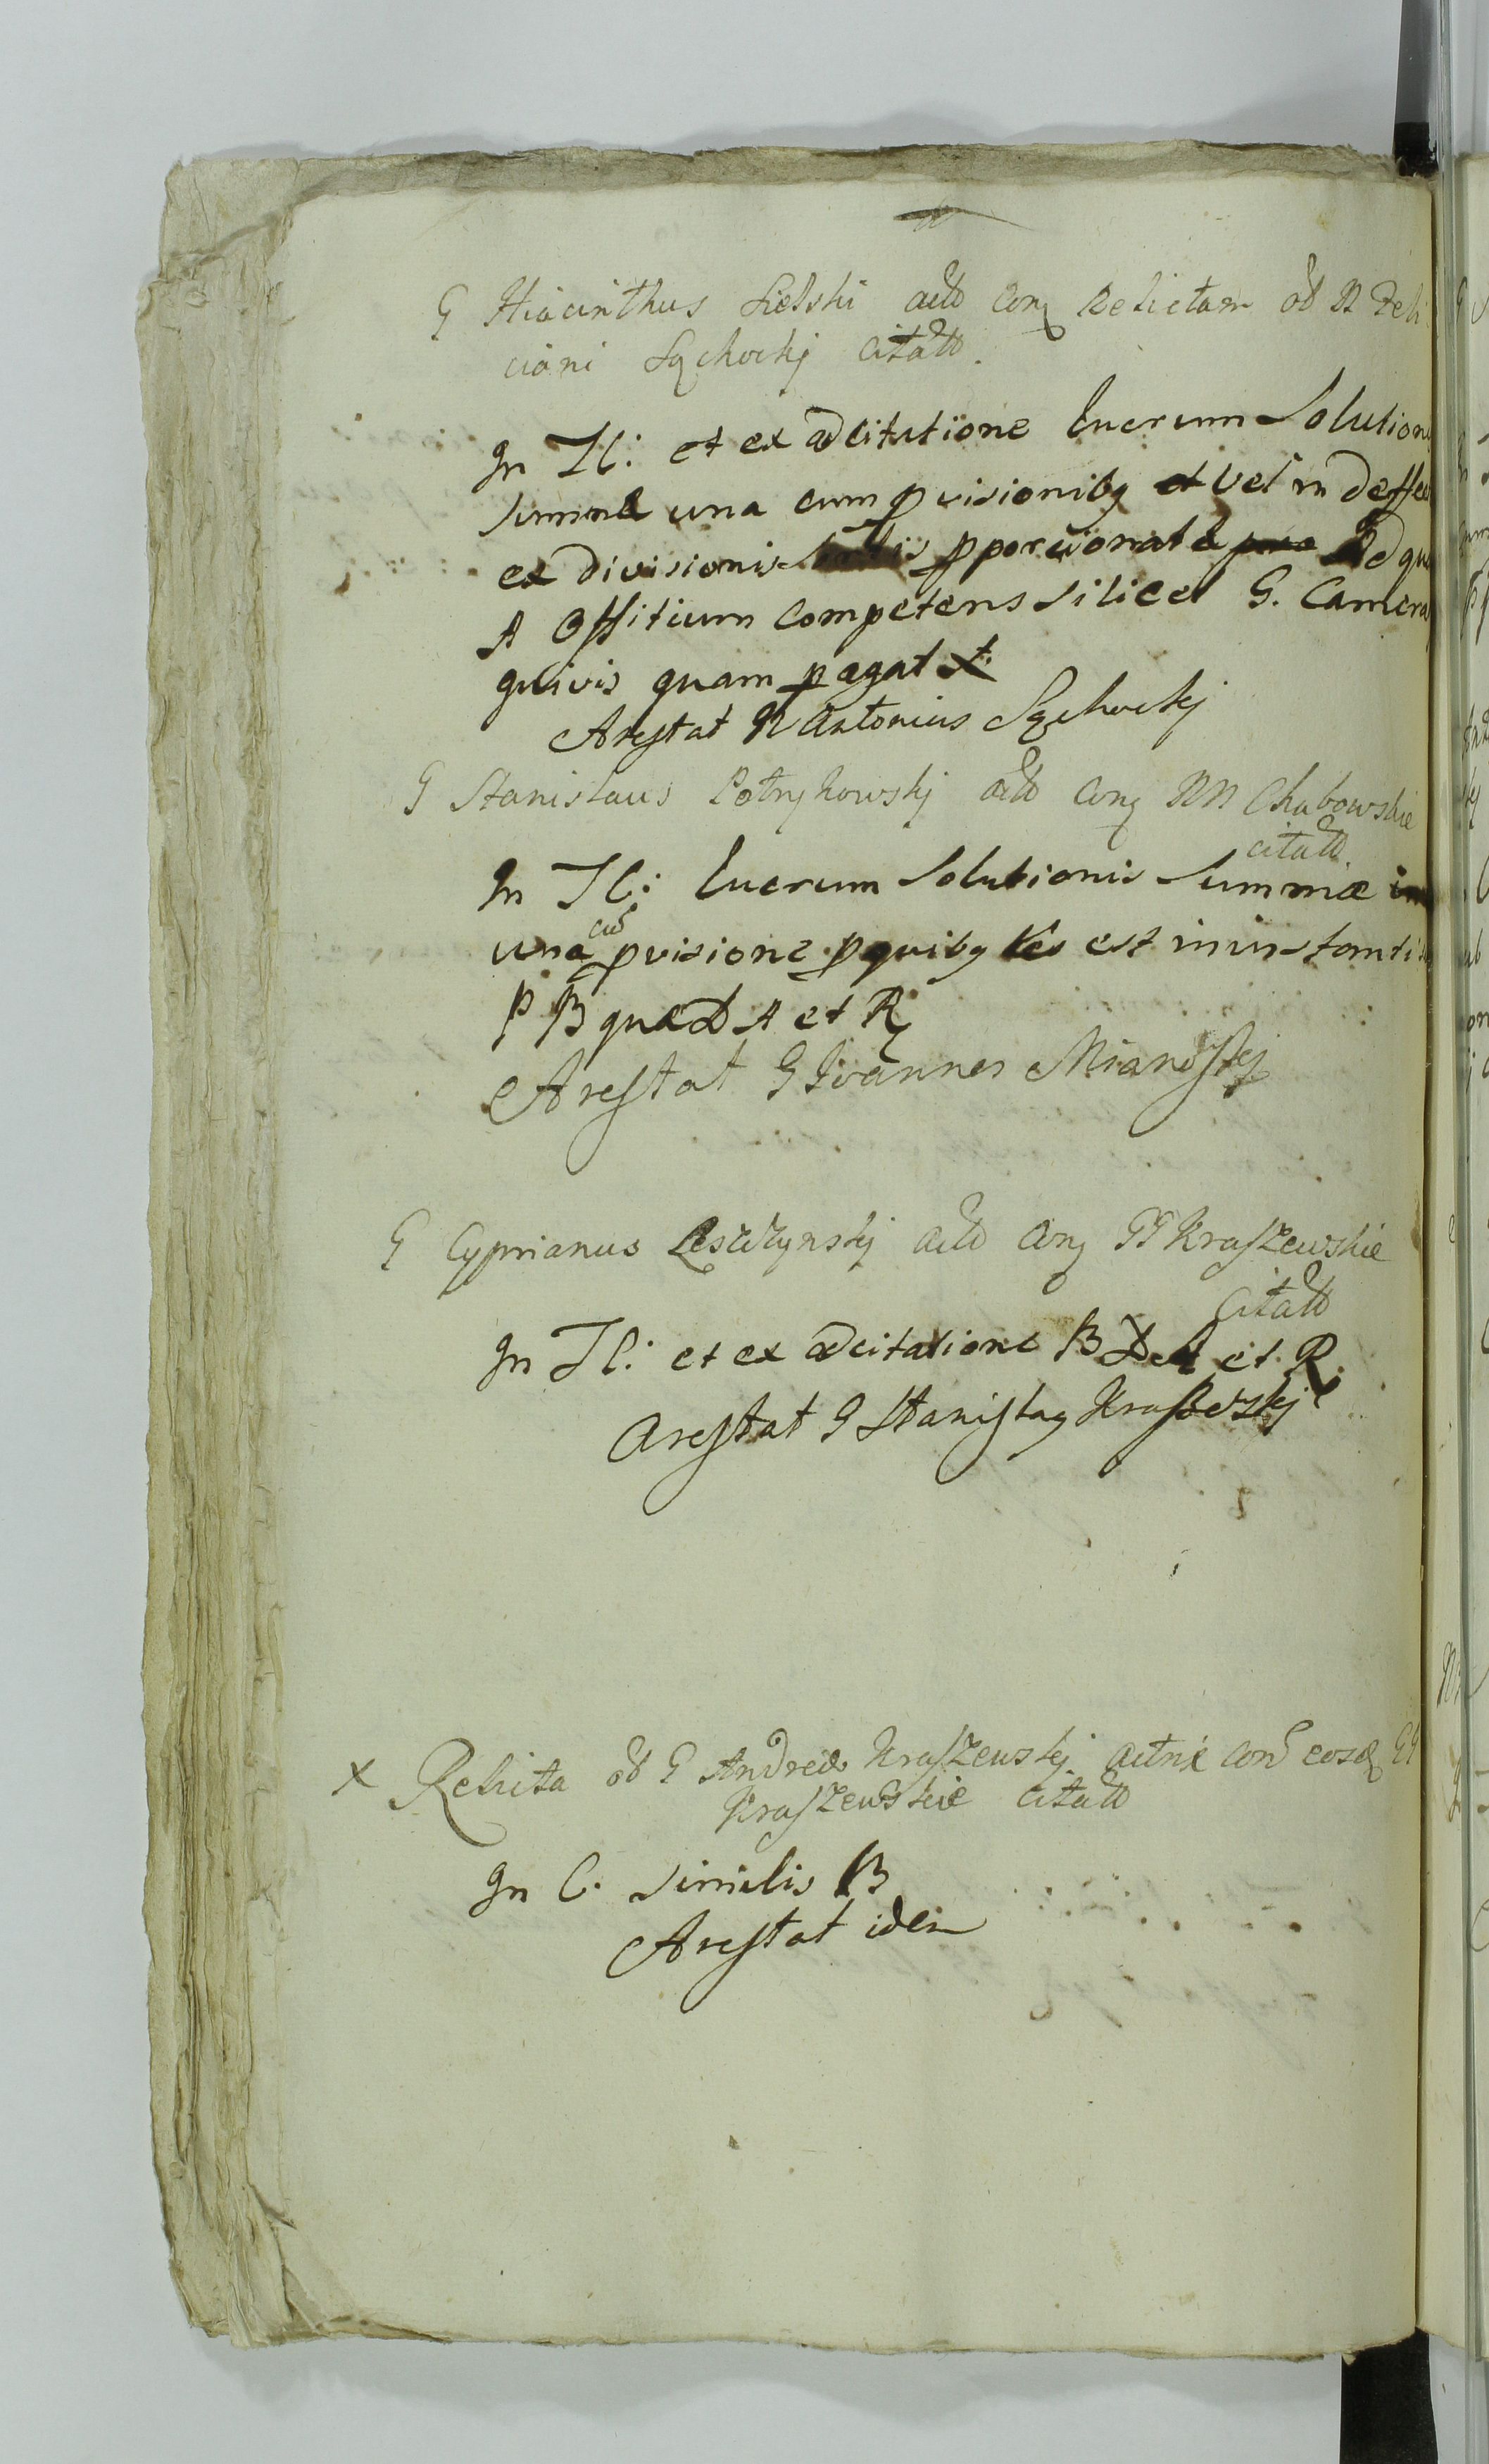 G Hiacinthus Sielski actō conṫ Relictam ol N Feli
ciani Sączhockj citatō.
In Il: et ex adcitatione lucrum Solution
summæ una cum pvisionibꝫ et vel in deffe
ex divisionis pporcionatæ Ad qu
A Offitium competens silicet G. Camera
quivis quam pagat
Arestat N Antonius Sączhockj
G Stanislaus Potrykowskj actō conṫ NN Chabowskie
citatō.
In Il: lucrum Solutionis Summæ
una cū pvisione p quibꝫ Res est in instanti
P B quæ D A et R
Arestat G Joannes Mianoskj
G Cyprianus Leszczynskj actō conṫ GG Kraszewskie
Citatō
In Il: et ex adcitatione B D A et R
Arestat G Stanislaꝫ Kraszewskj
x Relicta ol G Andreæ Kraszewskj actrix con eosꝫ GG
Kraszewskie citatō
In C. similis B
Arestat idem